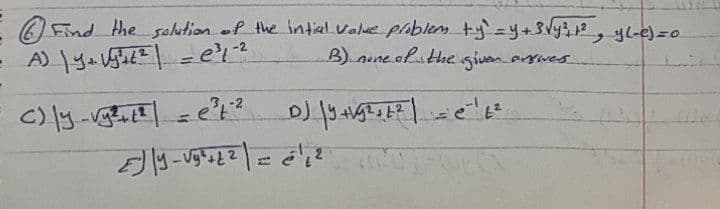 ⑥ Find the solution of the intial value problem ty' = y + 3√y²+t², y(-e)=0
A) |y+√y²+t²| = e³t⁻² B) none of the given answes
C) |y-√y²+t²| = e³t⁻² D) |y+√y²+t²| = e⁻¹t²
E) |y-√y²+t²| = e⁻¹t²